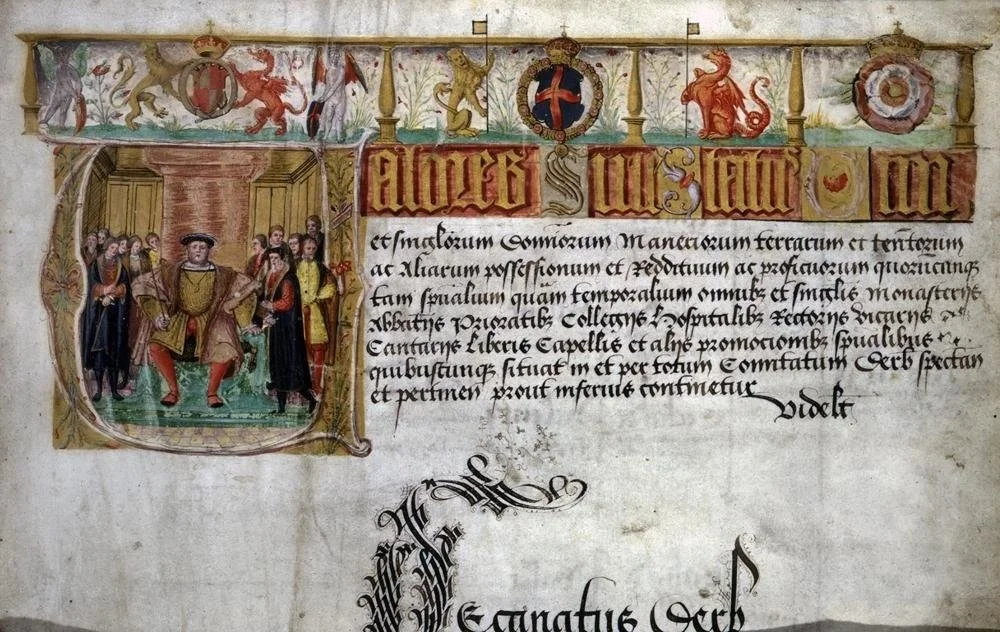 Valores Summar Statuū Om
et singlorum Dominiorum Maneriorum terrarum et tentorum
ac Aliarum possessionum et Reddituum ac proficuorum quorumcunqȝ
tam spualium quam temporalium omnibȝ et singlis Monasterijs
Abbatijs Prioratibȝ Collegijs Hospitalibȝ Rectorijs Vicarijs
Cantarijs Liberis Capellis et alijs promocionibȝ spualibus
quibuscunqȝ situat in et per totum Comitatum Derb spectan
et pertinen prout inferius continetur
Videlt
Decanatus Derb